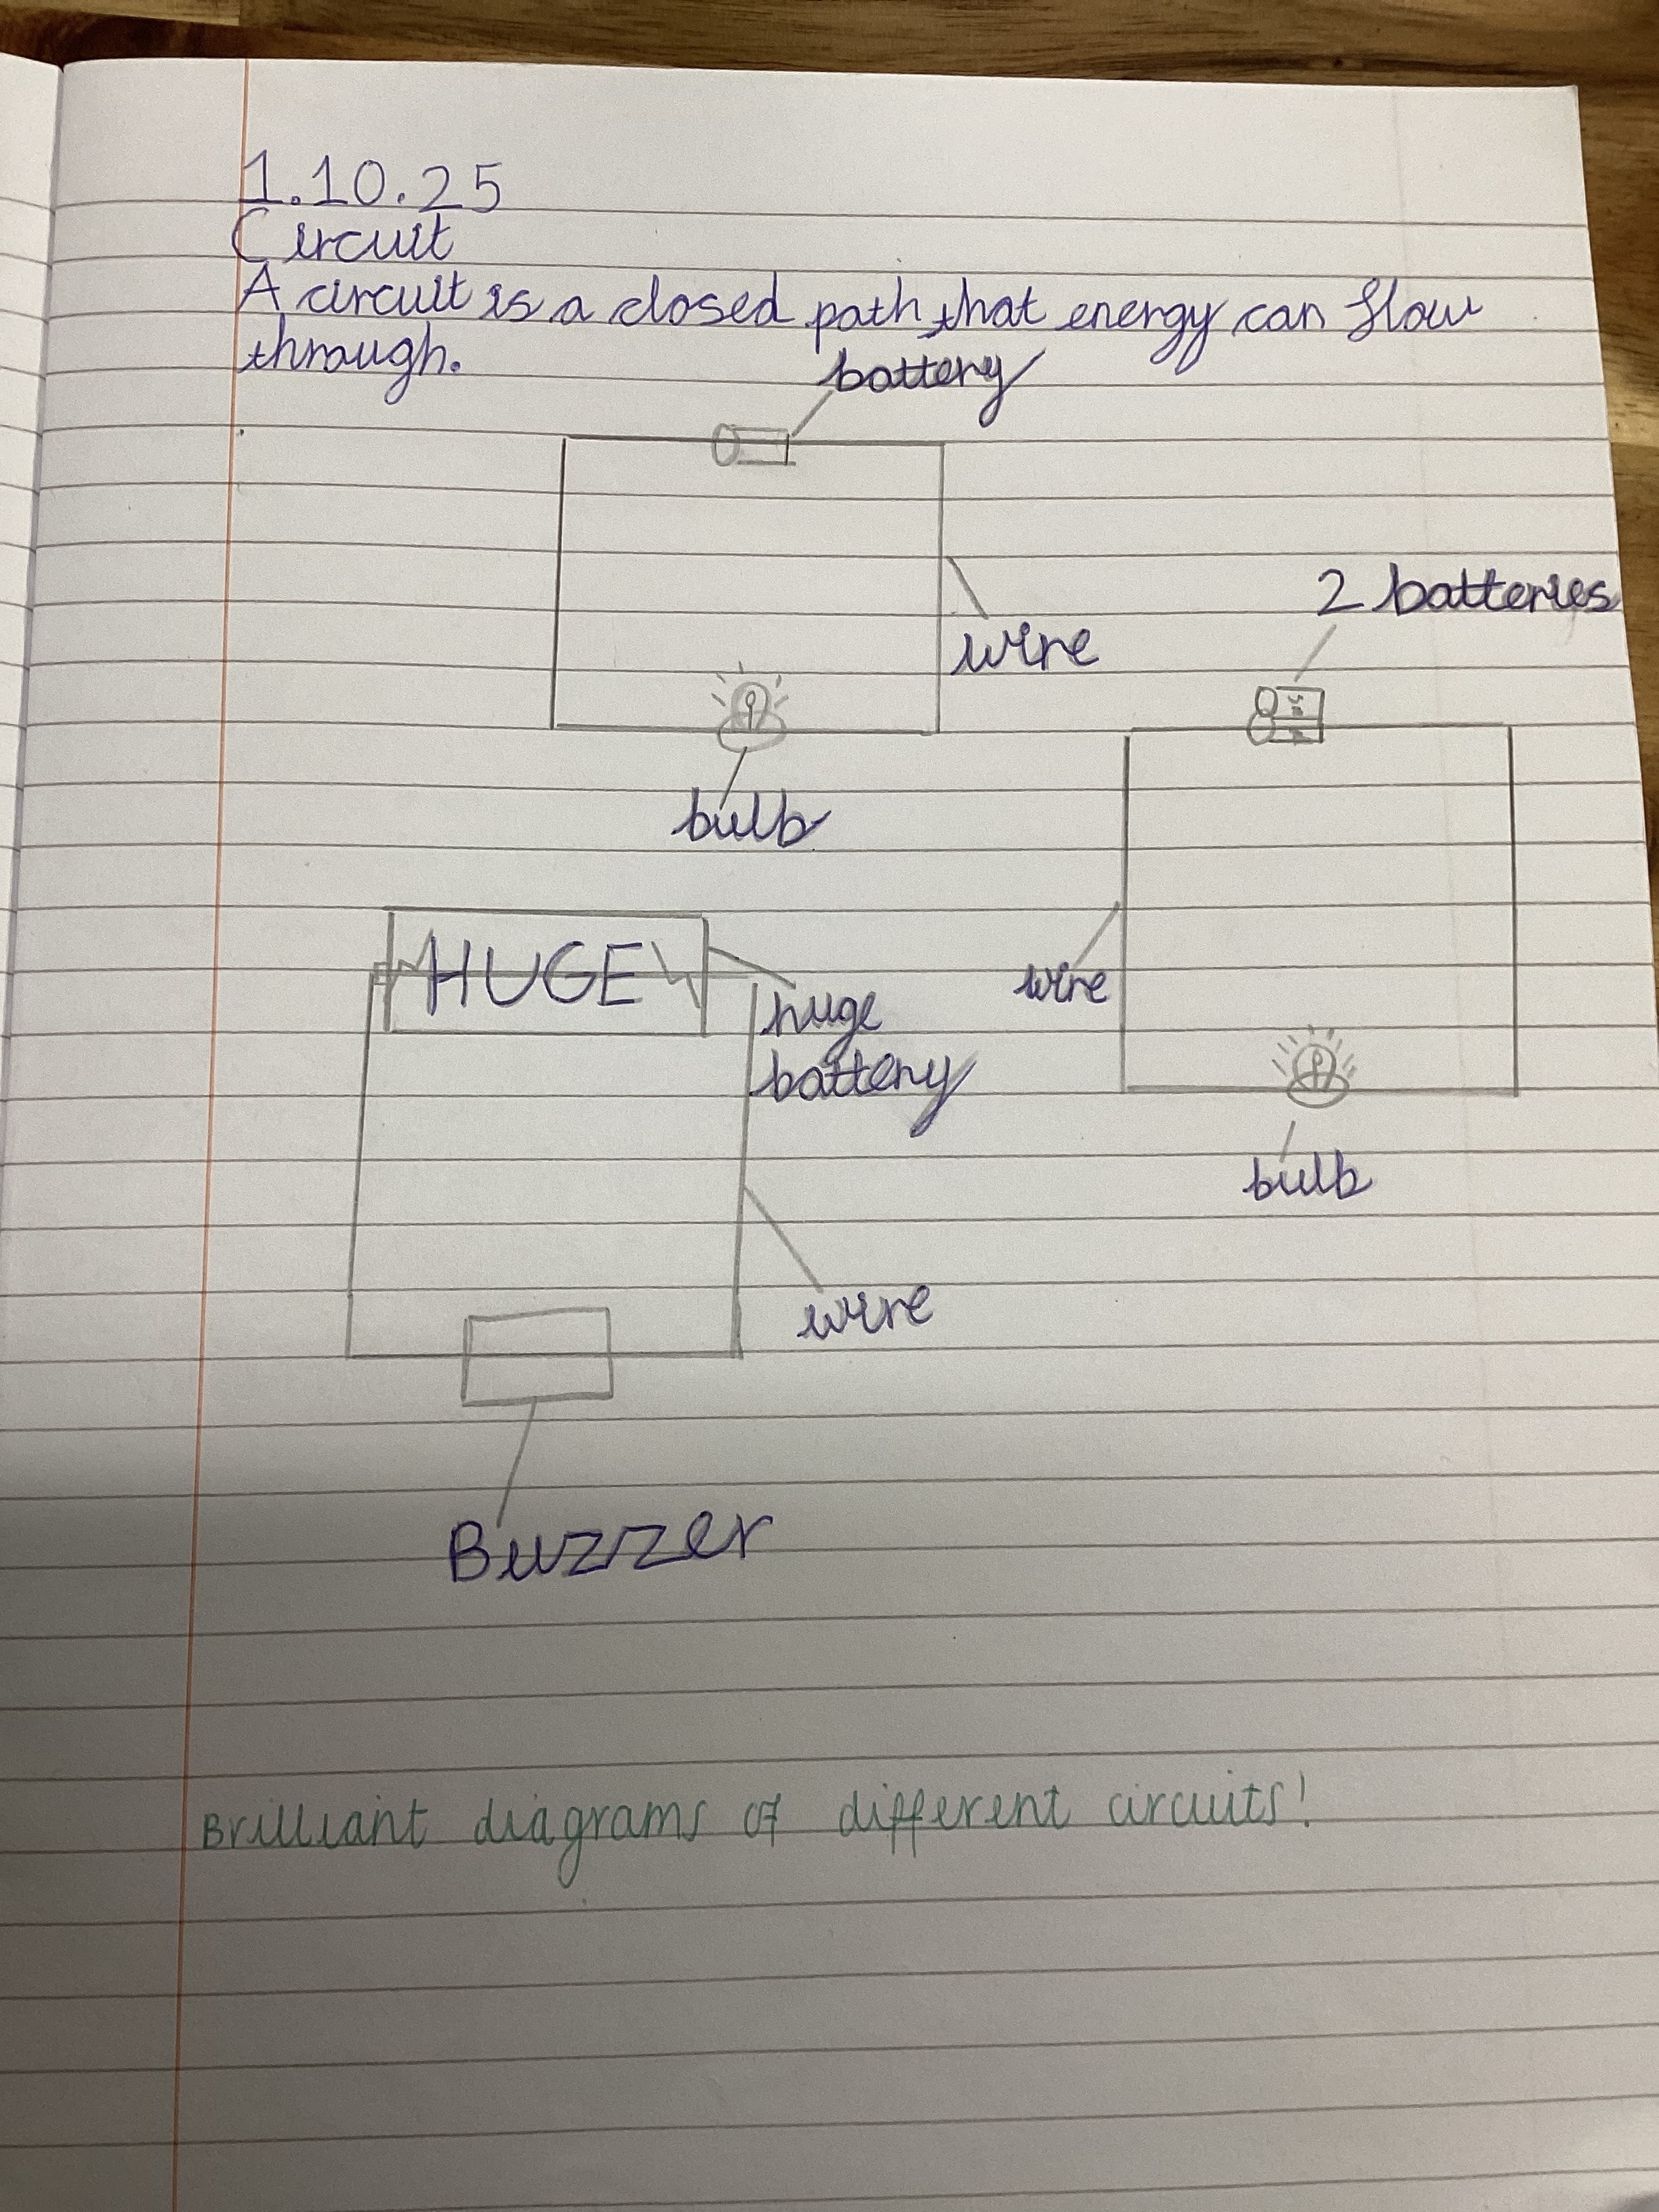 1.10.25
Circuit
A circuit is a closed path that energy can flow
through.
battery
wire
2 batteries
bulb
HUGE
huge
battery
wire
bulb
wire
Buzzer
Brilliant diagrams of different circuits!